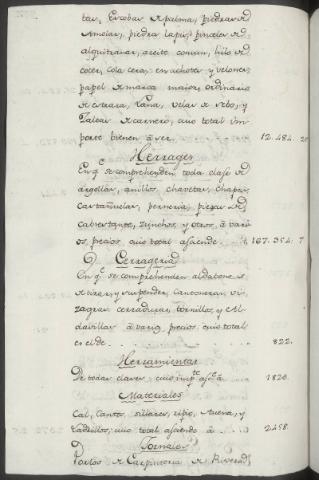 tar, Escobas de palma, piedras de
Amolar, piedra lapis, pinceles de
alquitranar, aceite comun, hilo de
cocer, cola, cera, en achotes y velones,
papel de marca maior, ordinario
de estraza, lana, velas de sebo, y
zaleas de carnero, cuio total im-
porte bienen à ser 12.484. 20
Herrages
En q.e se comprehenden toda clase de
argollas, anillos, chavetas, chapas,
pernería, piezas de
Cabrestante, Zunchos y otros, à vari-
os precios, cuio total asciende 167.354. 7
Cerragería
En q.e se comprehenden aldabones
de tirar, y suspender, vi-
zagras, cerraduras, tornillos, y Al-
davillas à varios precios, cuio total
es el de 822.
Herramientas
De todas clases, cuio imp.te asc.e à 1820.
Materiales
Cal, Canto, sillares, ripio, Arena, y
Ladrillos, cuio total asciende à 2458.
Jornales
De Carpinteria de Rivera,